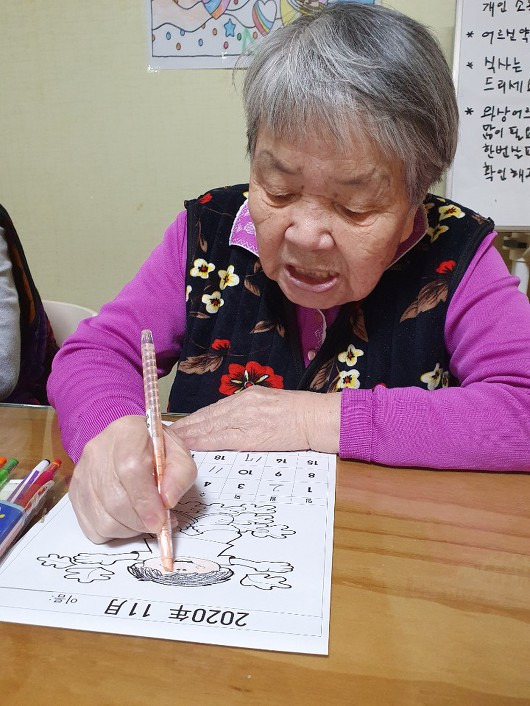 개인
* 어르신 약
* 식사는
드리세요
* 와상어
많이
확인해
2020年 11月
이름:
일 월 화
1 2 3 4
8 9 10 11
15 16 17 18